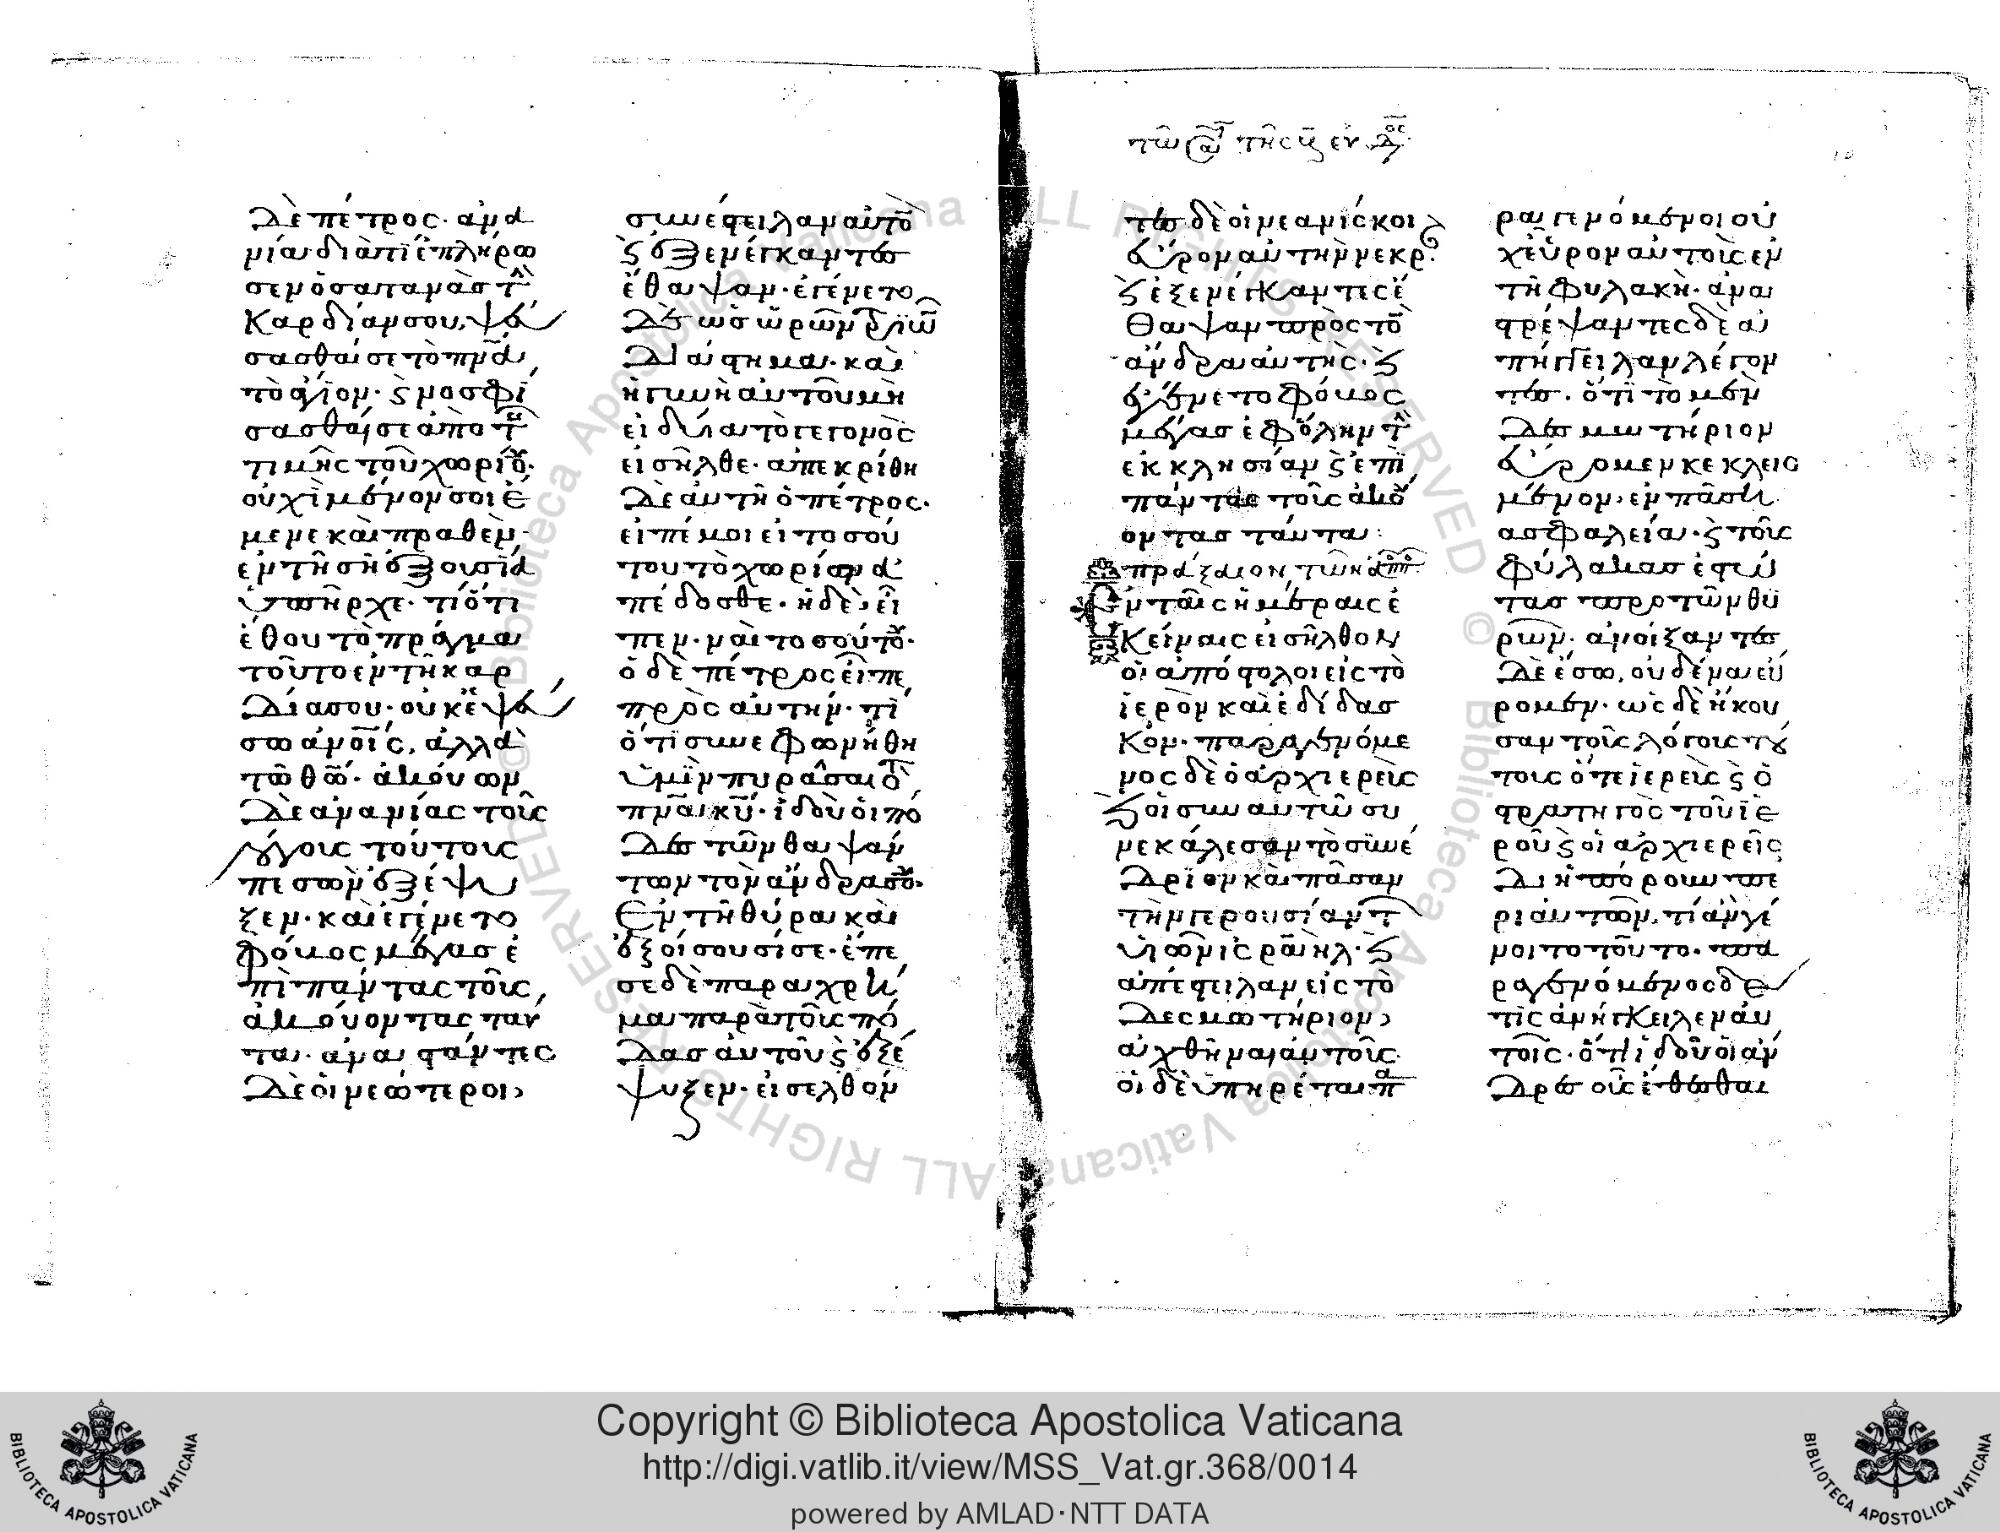 δὲ πέτρος· ἀνα
νία διατί ἐπλήρω
σεν ὁ σατανᾶς τὴν
καρδίαν σου, ψεύ
σασθαί σε τὸ πνᾶ
τὸ ἅγιον· καὶ νοσφί
σασθαί σε ἀπὸ τῆς
τιμῆς τοῦ χωρίου·
οὐχὶ μένον σοι ἔ
μενε καὶ πραθὲν
ἐν τῇ σῇ ἐξουσίᾳ
ὑπῆρχε· τί ὅτι
ἔθου τὸ πρᾶγμα
τοῦτο ἐν τῇ καρ
δία σου· οὐκ ἐψεύ
σω ἀνοις, ἀλλὰ
τῷ θῷ· ἀκούων
δὲ ἀνανίας τοὺς
λόγους τούτους
πεσὼν ἐξέψυ
ξεν· καὶ ἐγένετο
φόβος μέγας ἐ
πὶ πάντας τοὺς
ἀκούοντας ταῦ
τα· ἀναστάντες
δὲ οἱ νεώτεροι
συνέστειλαν αὐτὸν
καὶ ἐξενέγκαντες
ἔθαψαν· ἐγένετο
δὲ ὡς ὡρῶν τριῶν
διάστημα· καὶ
ἡ γυνὴ αὐτοῦ μὴ
εἰδυῖα τὸ γεγονὸς
εἰσῆλθε· ἀπεκρίθη
δὲ αὐτῇ ὁ πέτρος·
εἰπέ μοι εἰ τοσού
του τὸ χωρίον ἀ
πέδοσθε· ἡ δὲ εἶ
πεν· ναὶ τοσούτου·
ὁ δὲ πέτρος εἶπε
πρὸς αὐτήν· τί
ὅτι συνεφωνήθη
ὑμῖν πειράσαι τὸ
πνᾶ κυ· ἰδοὺ οἱ πό
δες τῶν θαψάν
των τὸν ἄνδρα σου·
ἐν τῇ θύρα καὶ
ἐξοίσουσί σε· ἔπε
σε δὲ παραχρῆ
μα παρὰ τοὺς πό
δας αὐτοῦ καὶ ἐξέ
ψυξεν· εἰσελθόν
τες δὲ οἱ νεανίσκοι
εὗρον αὐτὴν νεκράν·
καὶ ἐξενέγκαντες ἔ
θαψαν πρὸς τὸν
ἄνδρα αὐτῆς· καὶ
ἐγένετο φόβος
μέγας ἐφ' ὅλην τὴν
ἐκκλησίαν καὶ ἐπὶ
πάντας τοὺς ἀκού
οντας ταῦτα:
πράξεων τῶν ἀπο
Ἐν ταῖς ἡμέραις ἐ
κείναις εἰσῆλθον
οἱ ἀπόστολοι εἰς τὸ
ἱερὸν καὶ ἐδίδασ
κον· παραγενόμε
νος δὲ ὁ ἀρχιερεὺς
καὶ οἱ σὺν αὐτῷ συ
νεκάλεσαν τὸ συνέ
δριον καὶ πᾶσαν
τὴν γερουσίαν τῶν
υἱῶν ισραηλ· καὶ
ἀπέστειλαν εἰς τὸ
δεσμωτήριον
ἀχθῆναι αὐτούς·
οἱ δὲ ὑπηρέται πα
ραγενόμενοι οὐ
χ εὗρον αὐτοὺς ἐν
τῇ φυλακῇ· ἀνα
στρέψαντες δὲ ἀ
πήγγειλαν λέγον
τες· ὅτι τὸ μὲν
δεσμωτήριον
εὕρομεν κεκλεισ
μένον· ἐν πάσῃ
ἀσφαλεία· καὶ τοὺς
φύλακας ἑστῶ
τας πρὸ τῶν θυ
ρῶν· ἀνοίξαντες
δὲ ἔσω, οὐδένα εὕ
ρομεν· ὡς δὲ ἤκου
σαν τοὺς λόγους τού
τους ὅτε ἱερεὺς καὶ ὁ
στρατηγὸς τοῦ ἱε
ροῦ καὶ οἱ ἀρχιερεῖς
διηπόρουν πε
ρὶ αὐτῶν, τί ἂν γέ
νοιτο τοῦτο· πα
ραγενόμενος δέ
τις ἀνήγγειλεν αὐ
τοῖς· ὅτι ἰδοὺ οἱ ἄν
δρες οὓς ἔθεσθαι
Copyright © Biblioteca Apostolica Vaticana
http://digi.vatlib.it/view/MSS_Vat.gr.368/0014
powered by AMLAD·NTT DATA
BIBLIOTECA APOSTOLICA VATICANA
BIBLIOTECA APOSTOLICA VATICANA